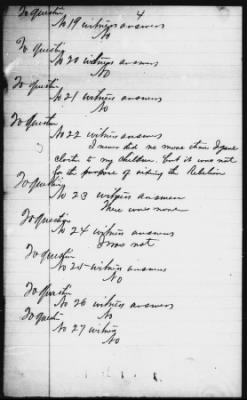 To question 4
No 19 witness answers
No
To question
No 20 witness answers
No
To question
No 21 witness answers
No
To question
No 22 witness answers
I never did no more than I gave
cloth to my children. but it was not
for the purpose of aiding the Rebellion
To question
No 23 witness answers
There was none
To question
No 24 witness answers
I was not
To question
No 25 witness answers
No
To question
No 26 witness answers
No
To question
No 27 witness
No